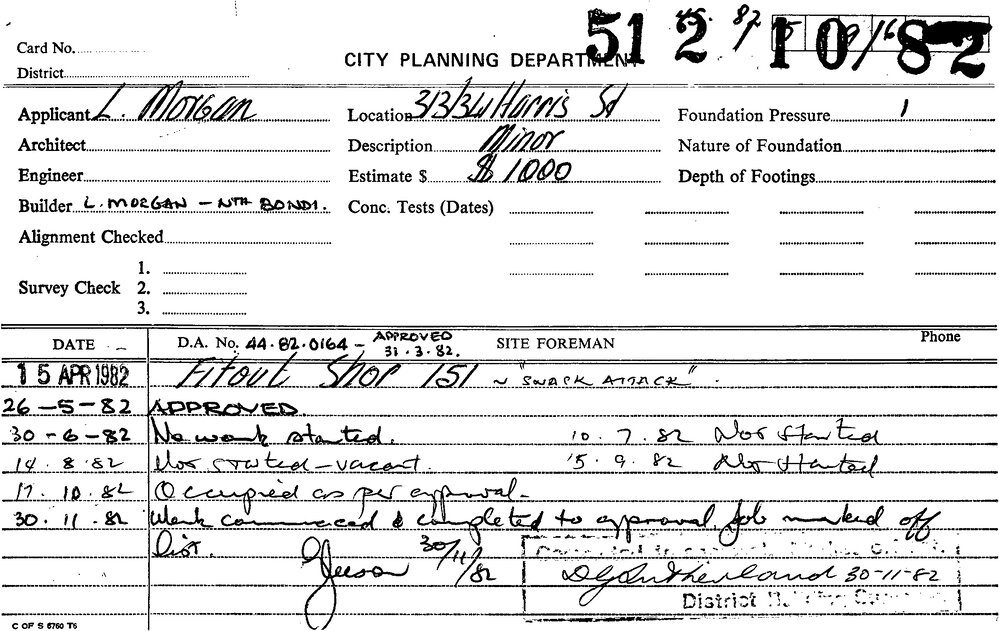 Card No.
District
CITY PLANNING DEPARTMENT
51 2 82 10/82
Applicant L. Morgan Location Harris St Foundation Pressure 1
Architect Description Minor Nature of Foundation
Engineer Estimate $ $ 1000 Depth of Footings
Builder L. MORGAN - NTH BONDI. Conc. Tests (Dates)
Alignment Checked
Survey Check 1.
2.
3.
DATE D.A. No. 44.82.0164 - APPROVED 31.3.82. SITE FOREMAN Phone
15 APR 1982 Fitout Shop 151 ~ "SNACK ATTACK".
26-5-82 APPROVED
30-6-82 No work started. 10.7.82 Not Started
14.8.82 Not started - vacant. 15.9.82 Not Started
17.10.82 Occupied as per approval.
30.11.82 Work commenced & completed to approval. Job marked off
list. 30/11/82
DG Sutherland 30-11-82
District
C OF S 6760 T5